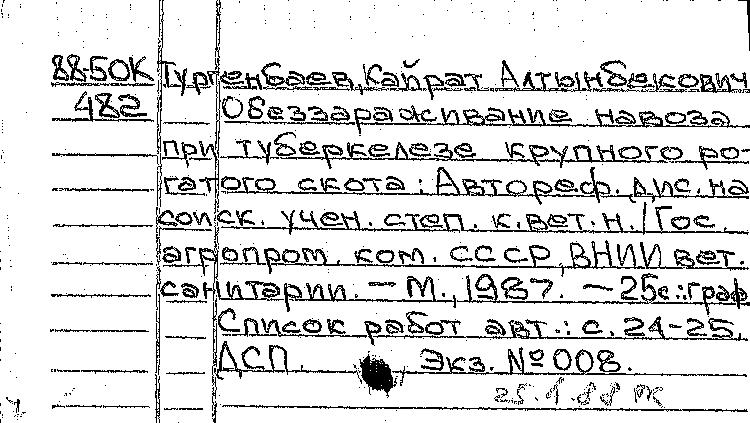 88-50К Тургенбаев, Кайрат Алтынбекович
482 Обеззараживание навоза
при туберкелезе крупного ро-
гатого скота: Автореф. дис. на
соиск. учен. степ. к. вет. н. / Гос.
агропром. ком. СССР, ВНИИ вет.
санитарии. — М., 1987. — 25с.: граф
Список работ авт.: с. 24-25.
ДСП. Экз. № 008.
25.1.88 РК